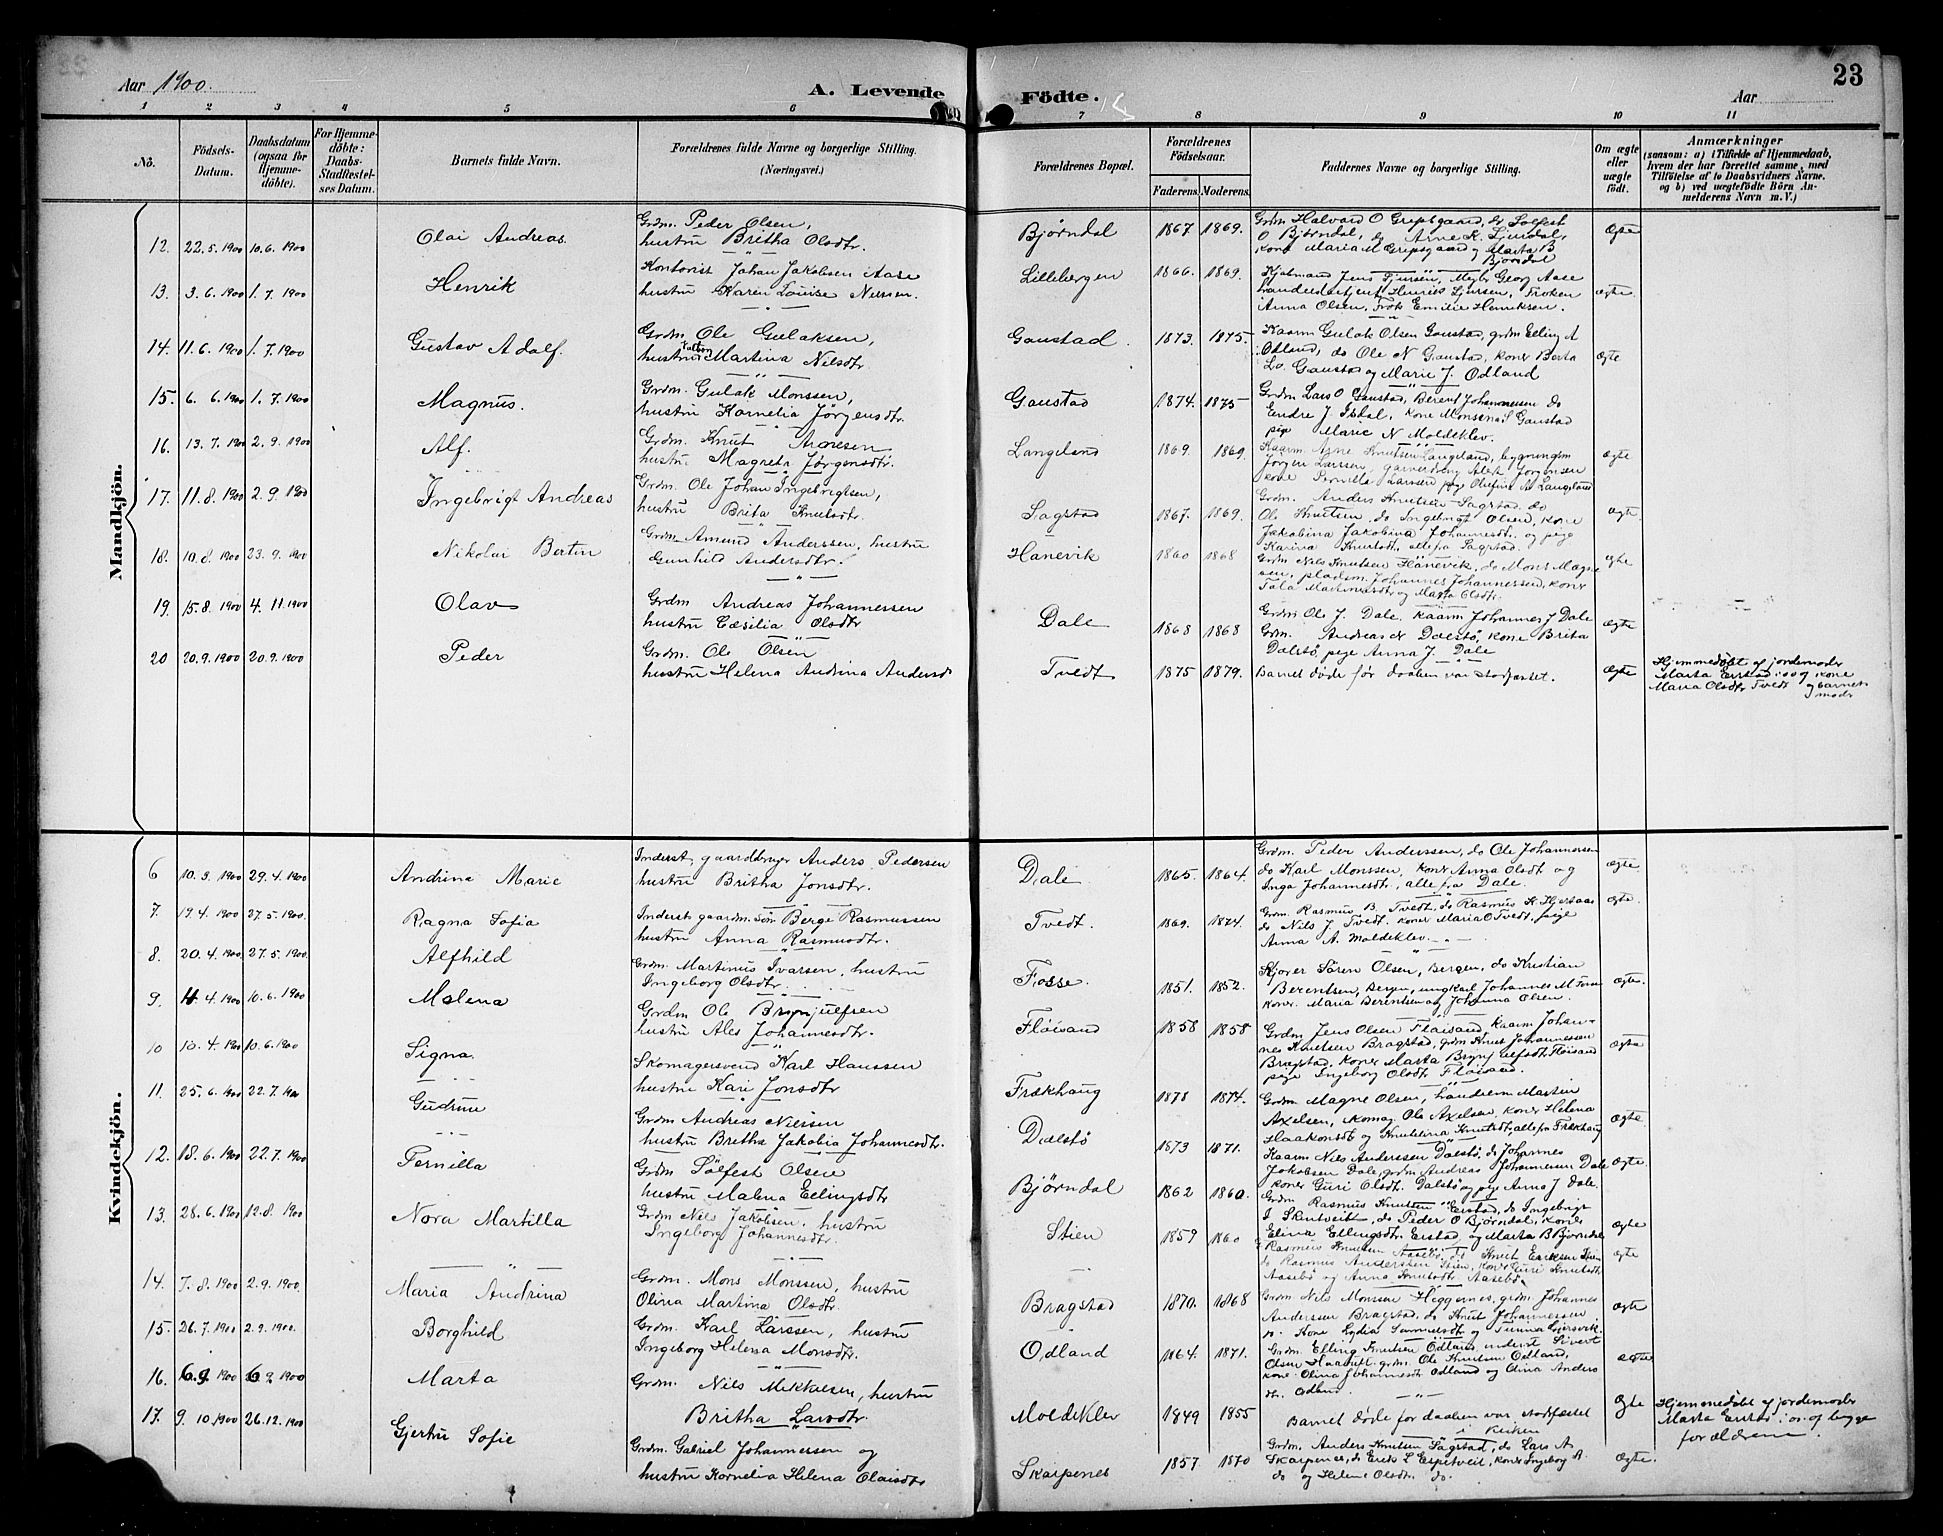 Aar 1900.
A. Levende Födte.
Aar
23
1 2 3 4 5 6 7 8 9 10 11
No.
Födsels-Datum.
Daabsdatum (ogsaa for Hjemmedöbte).
For Hjemmedöbte: Daabs-Stadfæstelses Datum.
Barnets fulde Navn.
Forældrenes fulde Navne og borgerlige Stilling. (Næringsvei.)
Forældrenes Bopæl.
Forældrenes Födselsaar.
Faderens. Moderens.
Faddernes Navne og borgerlige Stilling.
Om ægte eller uægte födt.
Anmærkninger
(saasom: a) i Tilfælde af Hjemmedaab,
hvem der har forrettet samme, med
Tilföielse af to Daabsvidners Navne.
og b) ved uægtefödte Börn Anmelderens Navn m.V.)
Mandkjön.
12. 22.5.1900 10.6.1900 Olai Andreas. Grdm. Peder Olsen, hustru Britha Olsdtr. Bjørndal 1867 1869. Grdm Halvard O Gripsgaard, do Solfest O Bjørndal, do Arne K. Ljundal, kone Maria M Gripsgaard og Marta B Bjørndal ægte
13. 3.6.1900 1.7.1900 Henrik Kontorist Johan Jakobsen Aase hustru Karen Louise Nilsen. Lillebergen 1866. 1869. Georg Aase Henrik Frøken Anna Olsen, Frøk Emilie Henriksen. ægte.
14. 11.6.1900 1.7.1900 Gustav Adolf. Grdm. Ole Gulaksen, hustru Martina Nilsdtr. Gaustad. 1873. 1875. Kaarm Gulak Olsen Gaustad, grdm Elling A Odland, do Ole N Gaustad, koner Berta L. Gaustad og Marie J. Odland ægte
15. 6.6.1900 1.7.1900 Magnus. Grdm. Gulak Monssen, hustru Kornelia Jörgensdtr. Gaustad 1874. 1875 Grdm Lars O Gaustad, Berent Johannesen do Endre J. Isdal, kone Monsena S Gaustad pige Marie N Moldeklev.
16. 13.7.1900 2.9.1900 Alf. Grdm. Knut Arnesen hustru Magreta Jørgensdtr. Langeland 1869. 1869. Kaarm Arne Knutsen Langeland, Jørgen Larssen, Jørgensen kone Pernilla Larssen pige Olufina A Langeland ægte
17. 11.8.1900 2.9.1900 Ingebrigt Andreas Grdm. Ole Johan Ingebrigtsen, hustru Brita Knutsdtr. Sagstad 1867. 1869. Grdm. Anders Knutsen Sagstad, do Ole Knutsen, do Ingebrigt Olsen, kone Jakobina Jakobina Johannesdt. og pige Karina Knutsdt, alle fra Sagstad. ægte
18. 10.8.1900 23.9.1900 Nikolai Bertin Grdm. Amund Anderssen, hustru Gunhild Andersdtr. Hanevik 1860 1868 Grdm Nils Knutsen Hanevik, do Mons Magnesen, pladsm. Johannes Johannessen, koner og Marta Olsdtr. ægte
19. 15.8.1900 4.11.1900 Olav Grdm Andreas Johannessen hustru Cæsilia Olsdtr Dale 1868 1868 Grdm Ole J. Dale. kaarm Johannes J Dale Grdm. Andreas N Dalstø, kone Brita Dalstø, pige Anna J. Dale ægte
20 20.9.1900 20.9.1900 Peder Grdm. Ole Olsen hustru Helena Andrina Andersd Tvedt 1875 1879. Barnet døde før daaben var stadfæstet. ægte Hjemmedøbt af jordemoder Marta Eirstad og kone Maria Olsdtr Tvedt og barnets moder
Kvindekjön.
6 10.3.1900 29.4.1900 Andrina Marie Inderst, gaardbruger Anders Pedersen hustru Britha Jonsdtr. Dale 1865. 1864. Grdm. Peder Anderssen, do Ole Johannessen do Karl Monssen, koner Anna Olsdt og Inga Johannesdtr, alle fra Dale. ægte
7. 19.4.1900 27.5.1900. Ragna Sofia Inderst gaardm. søn Berge Rasmussen hustru Anna Rasmusdtr. Tvedt. 1869. 1874. Grdm. Rasmus B. Tvedt, do Rasmus K. Hjertaas do Nils J. Tvedt. koner Maria O Tvedt, pige Anna A. Moldeklev. ægte.
8. 20.4.1900. 27.5.1900. Alfhild Grdm. Martinus Ivarsen, hustru Ingeborg Olsdtr. Fosse. 1851. 1852. Skjover Søren Olsen, Bergen, do Kristian Berentsen, Bergen, ungkarl Johannes M Fosse koner Maria Berentsen og Johanna Olsen. ægte.
9. 4.1900 10.6.1900 Malena Grdm Ole Brynjulfsen hustru Ales Johannesdtr. Fløisand 1858 1858 Grdm Jens Olsen Fløisand, kaarm Johannes Knutsen Bragstad, grdm Knut Johannessen Bragstad, koner Marta Brynjulfsdt. Fløisand pige Ingeborg Olsdt. Fløisand. ægte
10 10.4.1900 10.6.1900 Signa. Skomagersvend Karl Hanssen hustru Kari Jonsdtr Frækhaug 1878 1874. Grdm. Magne Olsen, Martin Axelsen, skomag Ole Axelsen, koner Helena Haakonsdt og Knutina Knutsdt, alle fra Frækhaug ægte
11. 25.6.1900 22.7.1900 Gudrun Grdm Andreas Nilssen hustru Britha Jakobia Johannesdtr. Dalstø 1873 1871. Kaarm Nils Anderssen Dalstø, do Johannes Jakobsen Dale, grdm Andreas Johannesen Dale koner Guri Olsdt. Dalstø og pige Anna J Dale. ægte.
12. 18.6.1900 22.7.1900 Pernilla Grdm Sølfest Olsen hustru Malena Ellingsdtr Bjørndal 1862 1860. Grdm Rasmus Knutsen Eirstad, do Ingebrigt I Skutveit, do Peder O Bjørndal, koner Elina Ellingsdtr. Eirstad, og Marta B Bjørndal ægte
13. 28.6.1900 12.8.1900 Nora Martilla Grdm Nils Jakobsen, hustru Ingeborg Johannesdtr. Stien 1859 1860 Rasmus Knutsen Aasebø, do Knut Eriksen do Rasmus Anderssen Stien, kone Guri Knutsdt Aasebø og Anna Knutsdt Aasebø ægte
14. 7.8.1900 2.9.1900. Maria Andrina Grdm. Mons Monssen, hustru Olina Martina Olsdtr. Bragstad 1870. 1868 Grdm Nils Monsen Heggernes, grdm. Johannes Anderssen Bragstad, do Knut Johannessen do. Kone Lydia ægte
15. 26.7.1900 2.9.1900. Borghild Grdm. Karl Larssen, hustru Ingeborg Helena Monsdtr. Odland 1864. 1871. Grdm. Elling Knutsen Odland, inderst Sivert Olsen grdm. Ole Knutsen Odland, kone Olina Johannesdt Odland og Olina Andersdt. Odland. ægte
16. 6.9.1900 6.9.1900 Marta Grdm. Nils Mikkalsen, hustru Britha Larsdtr. Moldeklev 1849 1855 Barnet døde før daaben var stadfæstet i kirken ægte Hjemmedøbt af jordemoder Marta Eirstad i og begge forældrene.
17. 9.10.1900 26.12.1900 Gjertru Sofie Grdm. Gabriel Johannessen og hustru Kornelia Helena Olaisdtr Skarpenes 1857 1870 Grdm. Anders Knutsen Sagstad, do Lars A. Skarpenes, do Erik L Espetveit, kone Ingeborg A. do og Helene Olsdtr. do. ægte.